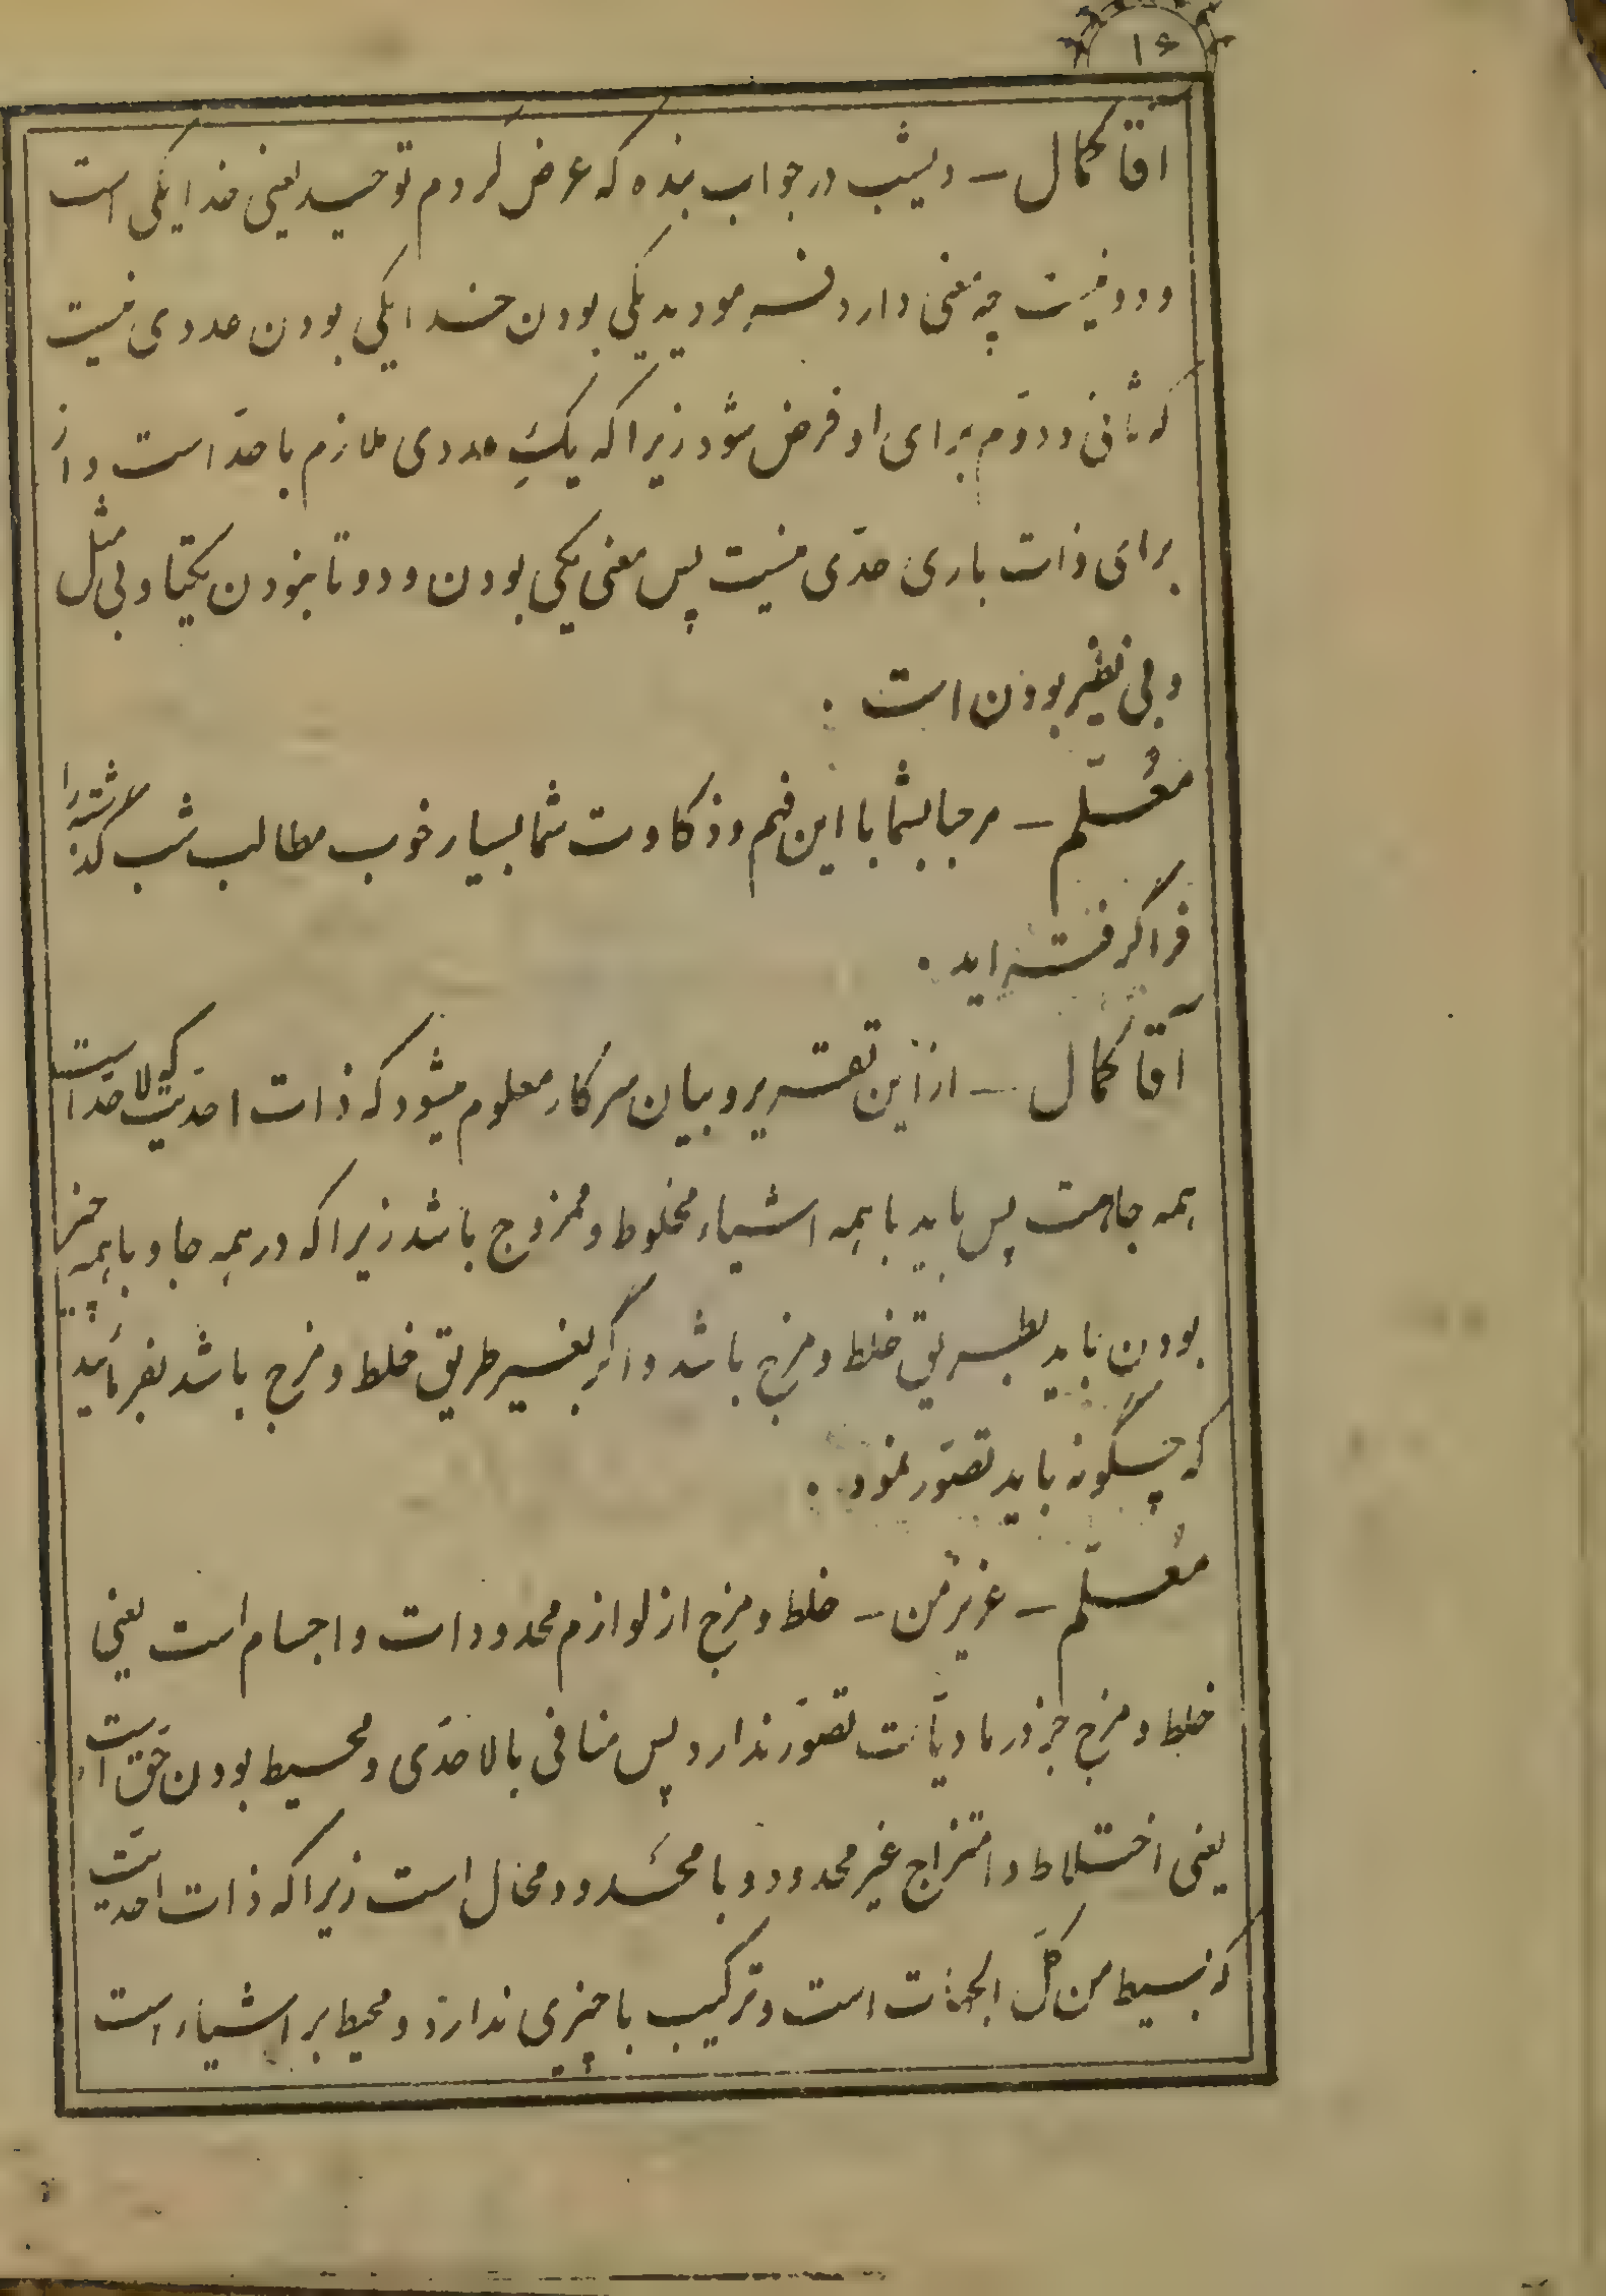 ۱۶
آقا کمال – دیشب در جواب بنده که عرض کردم توحید یعنی خدا یکی است
و دو نیست چه معنی دارد فرمودید یکی بودن خدا یکی بودن عددی نیست
که ثانی و دوّم برای او فرض شود زیرا که یکِ عددی ملازم با حدّ است و از
برای ذات باری حدّی نیست پس معنی یکی بودن و دو تا نبودن یکتا و بی مثل
و بی نظیر بودن است .
معُلّم – مرحبا بشما با این فهم و ذکاوت شما بسیار خوب مطالب شب گذشته را
فرا گرفته اید .
آقا کمال – از این تقریر و بیان سرکار معلوم میشود که ذات احدّیت که لا حدّ است
همه جا هست پس باید با همه اشیاء مخلوط و ممزوج باشد زیرا که در همه جا و با همه چیز
بودن باید بطریق خلط و مزج باشد و اگر بغیر طریق خلط و مزج باشد بفرمائید
که چگونه باید تصوّر نمود .
معُلّم – عزیز من – خلط و مزج از لوازم محدودات و اجسام است یعنی
خلط و مزج جز در مادیّات تصوّر ندارد پس منافی با لا حدّی و محیط بودن حقّ است
یعنی اختلاط و امتزاج غیر محدود و با محدود محال است زیرا که ذات احدیّت
که بسیط من کلّ الجهات است و ترکیب با چیزی ندارد و محیط بر اشیاء است